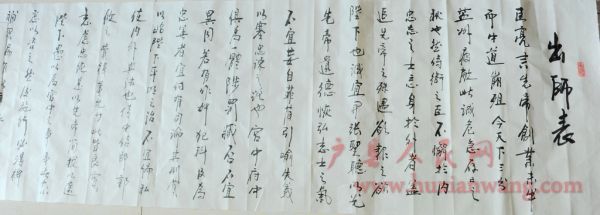 出师表
臣亮言先帝创业未半
而中道崩殂今天下三分
益州疲敝此诚危急存亡之
秋也然侍衛之臣不懈於内
忠志之士忘身於外者盖
追先帝之殊遇欲报之於
陛下也诚宜开张聖聽以光
先帝遗德恢弘志士之氣
不宜妄自菲薄引喻失義
以塞忠谏之路也宫中府中
俱为一體陟罚臧否不宜
異同若有作奸犯科及为
忠善者宜付有司論其刑賞
以昭陛下平明之治不宜偏私
使内外異法也侍中侍郎郭
攸之費禕董允等此皆良實
志慮忠纯是以先帝简拔以遗
陛下愚以为宫中之事事无大小
悉以咨之然後施行必得裨
户县人民网
www.huxianwang.com